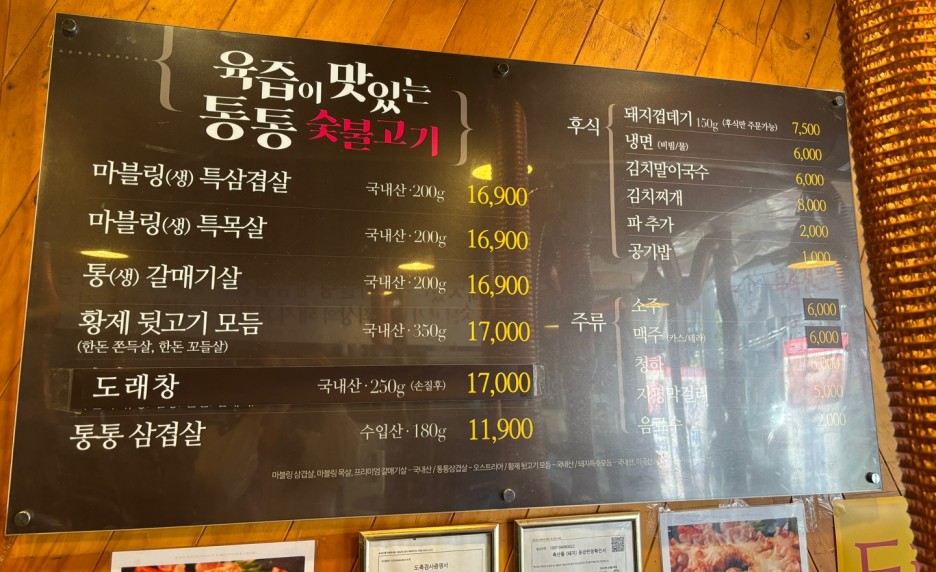 육즙이 맛있는
통통 숯불고기
마블링(생) 특삼겹살 국내산·200g 16,900
마블링(생) 특목살 국내산·200g 16,900
통(생) 갈매기살 국내산·200g 16,900
황제 뒷고기 모듬 국내산·350g 17,000
(한돈 쫀득살, 한돈 꼬들살)
도래창 국내산·250g (손질후) 17,000
통통 삼겹살 수입산·180g 11,900
후식
돼지껍데기 150g (후식만 주문가능) 7,500
냉면 (비빔/물) 6,000
김치말이국수 6,000
김치찌개 8,000
파 추가 2,000
공기밥 1,000
주류
소주 6,000
맥주 (카스/테라) 6,000
청하
지평막걸리 5,000
음료수 2,000
마블링 삼겹살, 마블링 목살, 프리미엄 갈매기살 - 국내산 / 통통삼겹살 - 오스트리아 / 황제 뒷고기 모듬 - 국내산 /
도축검사증명서